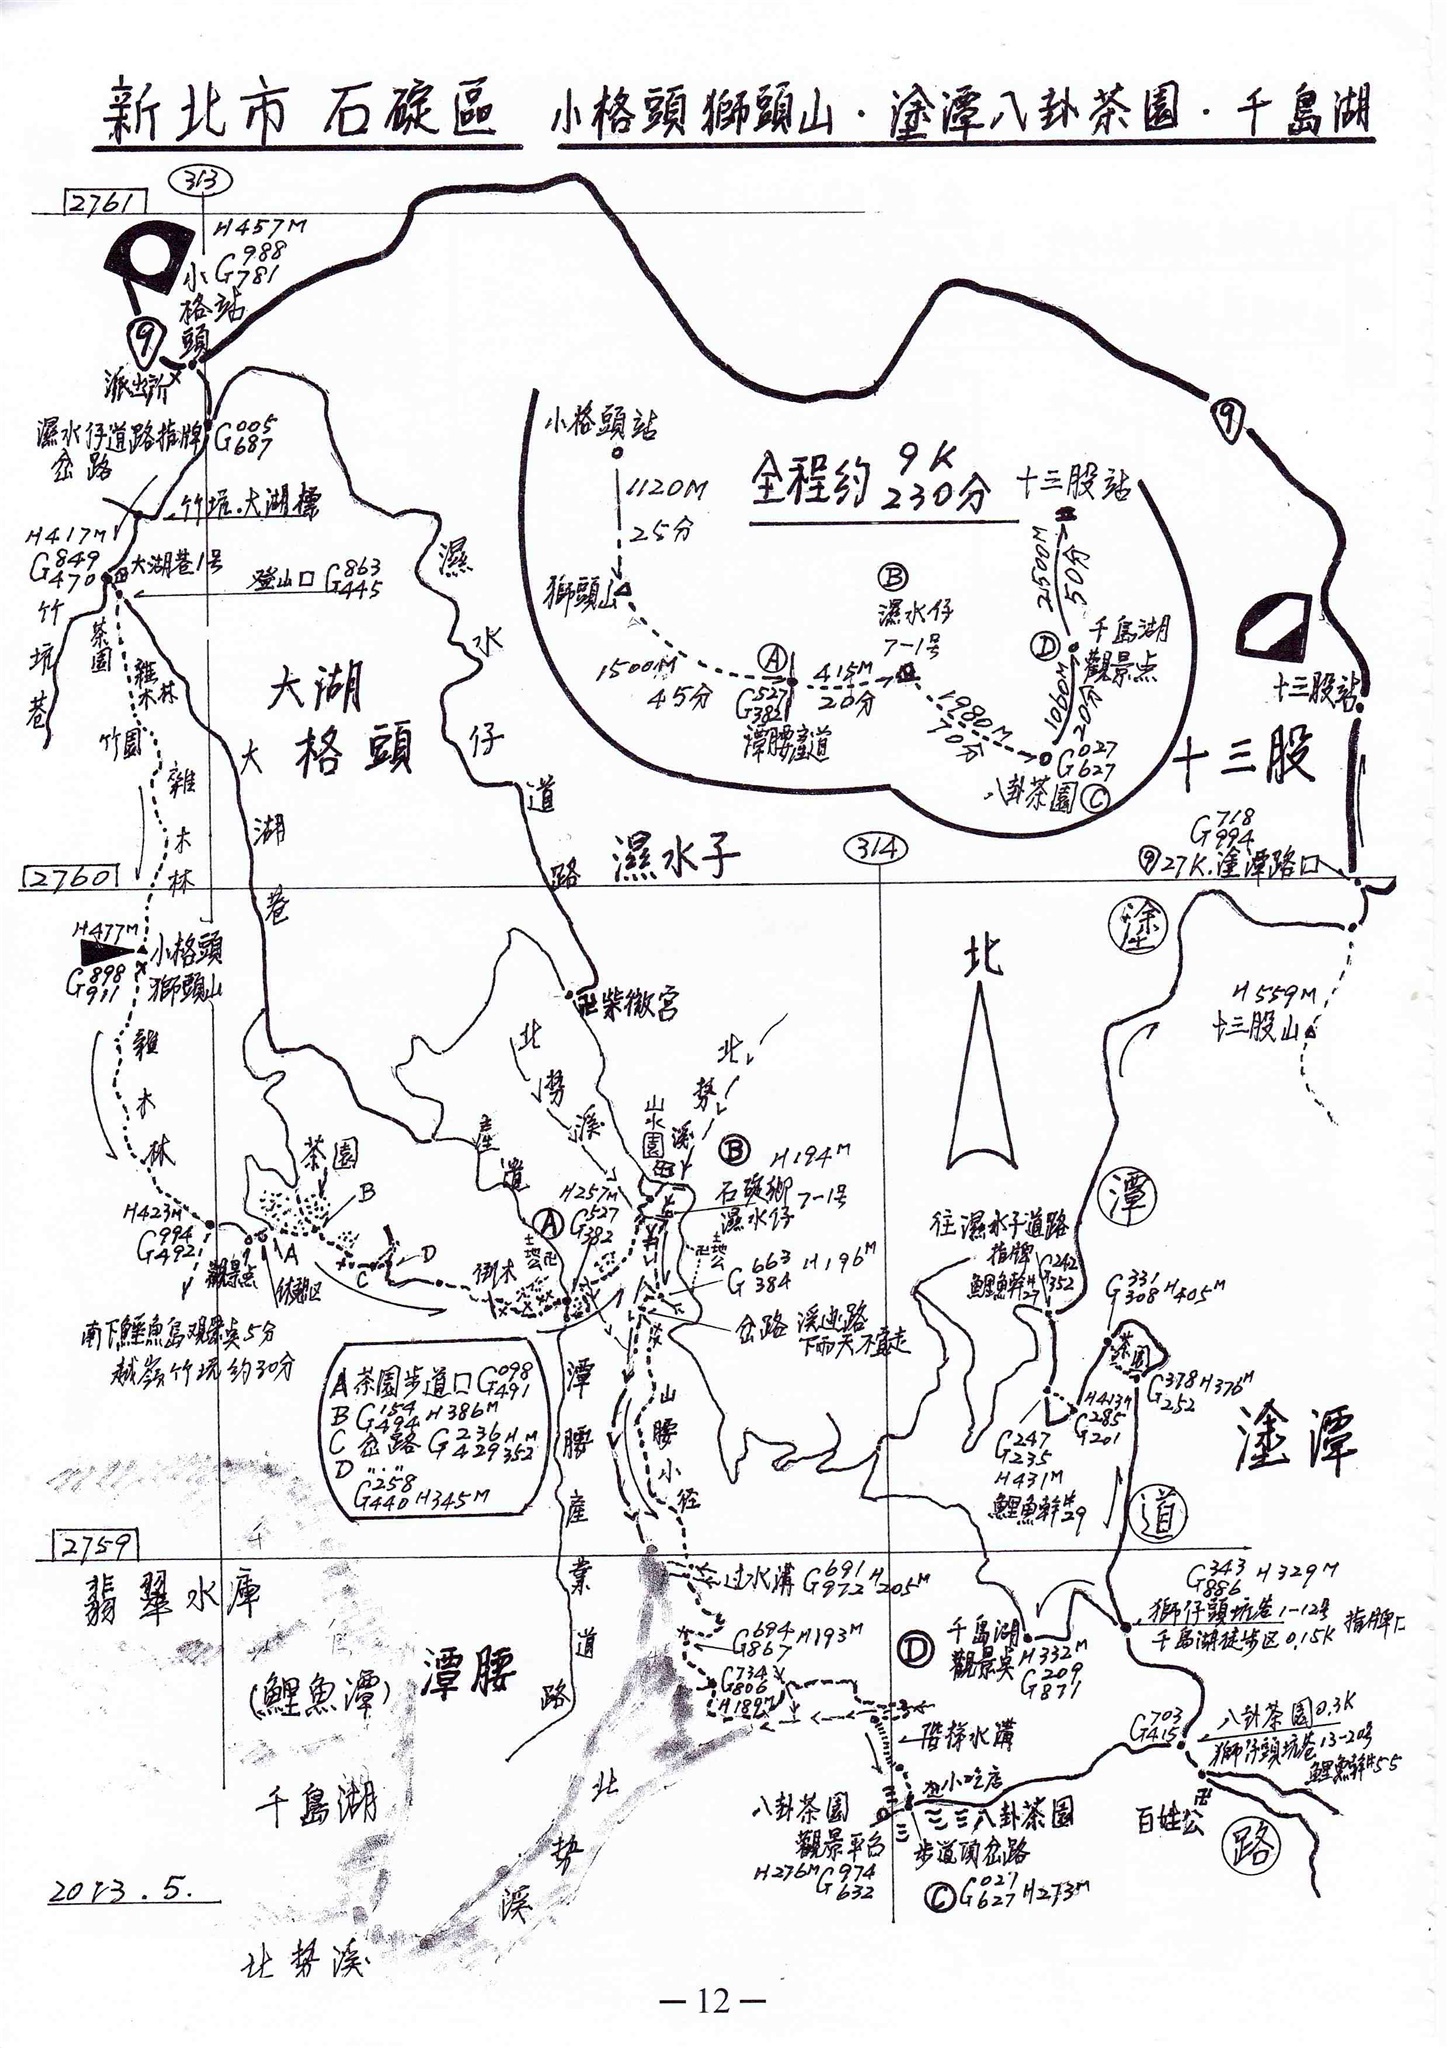 新北市 石碇區 小格頭獅頭山·塗潭八卦茶園·千島湖
313
2761
H457M
G988
781
小格頭站
9
派出所
濕水仔道路指牌
岔路
G005
687
竹坑.大湖標
H417M
G849
470
大湖巷1号
登山口G863
445
竹坑巷
茶園
雜木林
竹園
雜木林
大湖格頭
大湖巷
濕水仔道路
小格頭站
1120M
25分
獅頭山
1500M
45分
A
G527
382
潭腰産道
415M
20分
B
濕水仔
7-1号
1980M
70分
八卦茶園 C
G027
627
1090M
20分
D
千島湖
觀景点
2450M
50分
十三股站
全程約 9K
230分
9
十三股站
十三股
G718
994
9 27K.塗潭路口
314
濕水子
2760
H477M
G898
911
小格頭
獅頭山
雜木林
北
塗潭道路
H559M
十三股山
卍紫微宮
北勢溪
北勢溪
山水園
産道
茶園
B
A
C
D
H423M
G994
492
觀景点
休憩区
倒木
南下鱷魚島观景点5分
越嶺竹坑约30分
A
土地公卍
H257M
G527
382
B
H194M
石碇鄉
濕水仔 7-1号
卍土地公
G663
384 H196M
岔路 溪邊路
下雨天不宜走
往濕水子道路
指牌
鯉魚幹27
G242
352
G331
308 H405M
茶園
G378 H376M
252
H413M
G285
201
G247
235
H431M
鯉魚幹29
塗潭
A茶園步道口G098
491
B G154
494 H386M
C 岔路 G236 H M
429 352
D 〃.〃
G258
440 H345M
潭腰産業道路
山腰小径
2759
翡翠水庫
(鯉魚潭)
千島湖
潭腰
过水溝 G691 H
972 205M
G694 H193M
867
G734
806
H189M
D
千島湖
觀景点
H332M
G209
871
G343 H329M
886
獅仔頭坑巷1-12号
千島湖徒步区0.15K
指牌
階梯水溝
G703
415
八卦茶園0.3K
獅仔頭坑巷13-20号
鯉魚幹55
卍
百姓公
小吃店
八卦茶園
觀景平台
H276M G974
632
八卦茶園
步道頂岔路
C G027
627 H273M
北勢溪
北勢溪
2013.5.
— 12 —